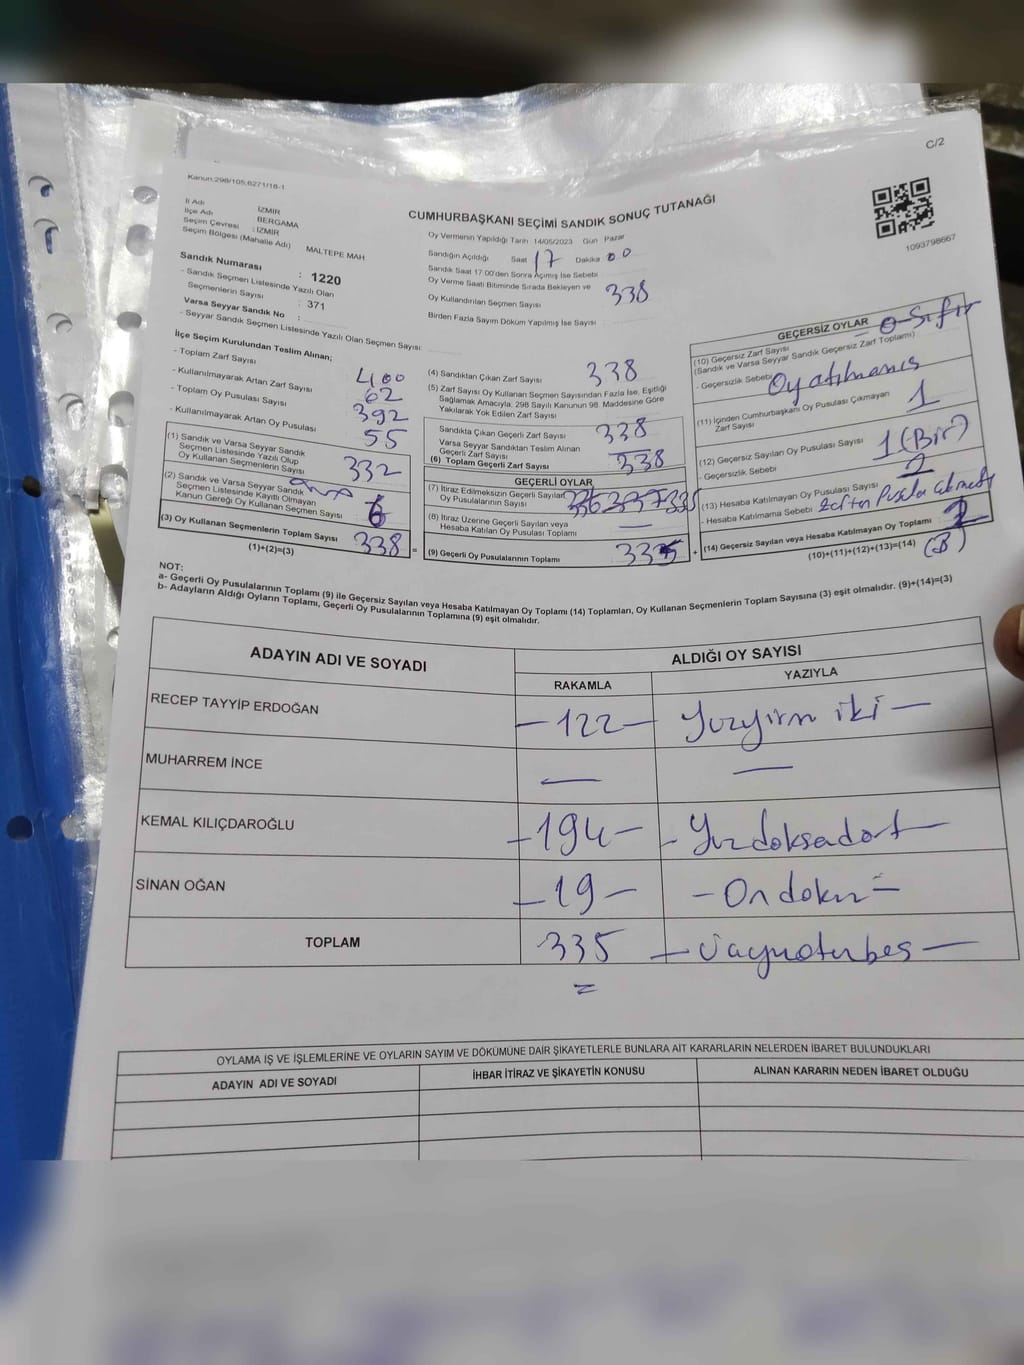 C/2
Kanun.298/105,6271/16-1
İl Adı İZMİR
İlçe Adı BERGAMA
Seçim Çevresi : İZMİR
Seçim Bölgesi (Mahalle Adı) MALTEPE MAH
CUMHURBAŞKANI SEÇİMİ SANDIK SONUÇ TUTANAĞI
1093798667
Oy Vermenin Yapıldığı Tarih 14/05/2023 Gün Pazar
Sandığın Açıldığı Saat 17 Dakika 00
Sandık Saat 17:00'den Sonra Açımış İse Sebebi
Oy Verme Saati Bitiminde Sırada Bekleyen ve
Oy Kullandırılan Seçmen Sayısı 338
Birden Fazla Sayım Döküm Yapılmış İse Sayısı
Sandık Numarası : 1220
- Sandık Seçmen Listesinde Yazılı Olan
Seçmenlerin Sayısı : 371
Varsa Seyyar Sandık No :
- Seyyar Sandık Seçmen Listesinde Yazılı Olan Seçmen Sayısı:
İlçe Seçim Kurulundan Teslim Alınan;
- Toplam Zarf Sayısı 400
- Kullanılmayarak Artan Zarf Sayısı 62
- Toplam Oy Pusulası Sayısı 392
- Kullanılmayarak Artan Oy Pusulası 55
(1) Sandık ve Varsa Seyyar Sandık
Seçmen Listesinde Yazılı Olup
Oy Kullanan Seçmenlerin Sayısı 332
(2) Sandık ve Varsa Seyyar Sandık
Seçmen Listesinde Kayıtlı Olmayan
Kanun Gereği Oy Kullanan Seçmen Sayısı 6
(3) Oy Kullanan Seçmenlerin Toplam Sayısı 338
(1)+(2)=(3)
(4) Sandıktan Çıkan Zarf Sayısı 338
(5) Zarf Sayısı Oy Kullanan Seçmen Sayısından Fazla İse, Eşitliği
Sağlamak Amacıyla, 298 Sayılı Kanunun 98. Maddesine Göre
Yakılarak Yok Edilen Zarf Sayısı
Sandıkta Çıkan Geçerli Zarf Sayısı 338
Varsa Seyyar Sandıktan Teslim Alınan
Geçerli Zarf Sayısı
(6) Toplam Geçerli Zarf Sayısı 338
GEÇERLİ OYLAR
(7) İtiraz Edilmeksizin Geçerli Sayılan
Oy Pusulalarının Sayısı 336 337 335
(8) İtiraz Üzerine Geçerli Sayılan veya
Hesaba Katılan Oy Pusulası Toplamı —
(9) Geçerli Oy Pusulalarının Toplamı 335
GEÇERSİZ OYLAR
(10) Geçersiz Zarf Sayısı = 0 - Sıfır
(Sandık ve Varsa Seyyar Sandık Geçersiz Zarf Toplamı)
- Geçersizlik Sebebi Oy atılmamış
(11) İçinden Cumhurbaşkanı Oy Pusulası Çıkmayan
Zarf Sayısı 1
(12) Geçersiz Sayılan Oy Pusulası Sayısı 1 (Bir)
- Geçersizlik Sebebi
(13) Hesaba Katılmayan Oy Pusulası Sayısı 2
- Hesaba Katılmama Sebebi Zarftan Pusula
(14) Geçersiz Sayılan veya Hesaba Katılmayan Oy Toplamı :
(10)+(11)+(12)+(13)=(14)
NOT:
a- Geçerli Oy Pusulalarının Toplamı (9) ile Geçersiz Sayılan veya Hesaba Katılmayan Oy Toplamı (14) Toplamları, Oy Kullanan Seçmenlerin Toplam Sayısına (3) eşit olmalıdır. (9)+(14)=(3)
b- Adayların Aldığı Oyların Toplamı, Geçerli Oy Pusulalarının Toplamına (9) eşit olmalıdır.
ADAYIN ADI VE SOYADI ALDIĞI OY SAYISI
RAKAMLA YAZIYLA
RECEP TAYYİP ERDOĞAN -122- Yuzyirmi iki —
MUHARREM İNCE — —
KEMAL KILIÇDAROĞLU -194- - Yuzdoksadort —
SİNAN OĞAN -19- - Ondoku -
TOPLAM 335
OYLAMA İŞ VE İŞLEMLERİNE VE OYLARIN SAYIM VE DÖKÜMÜNE DAİR ŞİKAYETLERLE BUNLARA AİT KARARLARIN NELERDEN İBARET BULUNDUKLARI
ADAYIN ADI VE SOYADI İHBAR İTİRAZ VE ŞİKAYETİN KONUSU ALINAN KARARIN NEDEN İBARET OLDUĞU